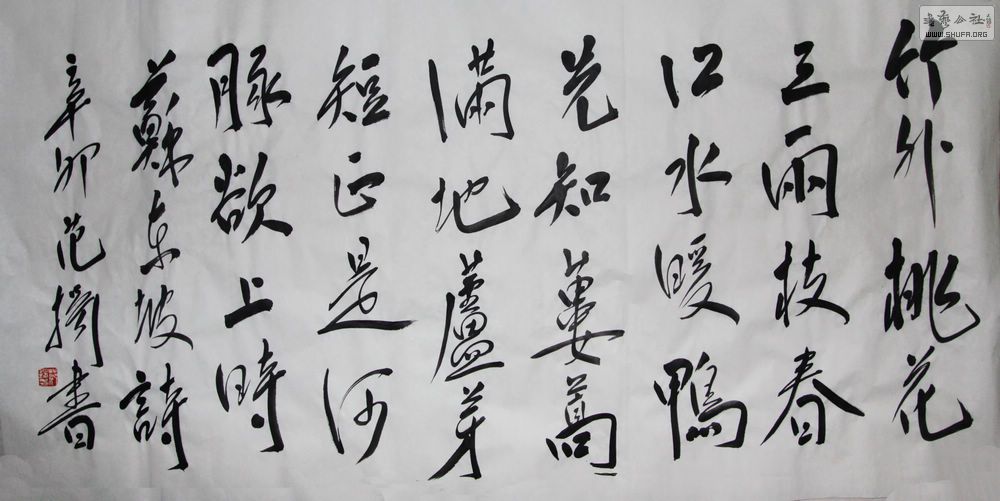 竹外桃花
三兩枝春
江水暖鴨
先知蔞蒿
滿地蘆芽
短正是河
豚欲上時
蘇東坡詩
辛卯范書
书艺公社
WWW.SHUFA.ORG